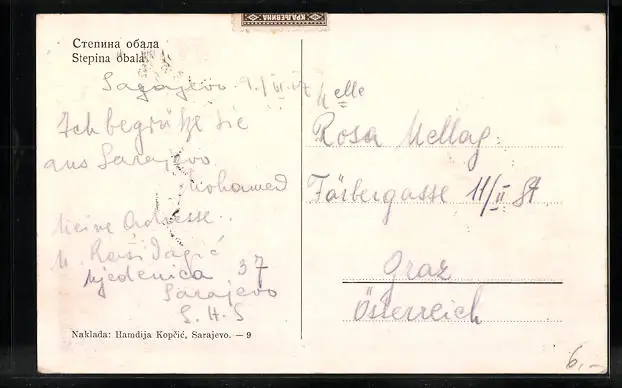 КРАЉЕВИНА
Степина обала
Stepina obala
Sarajevo 9./VI.
Ich begrüße Sie
aus Sarajevo
Mohamed
Meine Adresse..
M. Rašidagić
Mjedenica 37
Sarajevo
S.H.S
Naklada: Hamdija Kopčić, Sarajevo. — 9
elle
Rosa Mellag.
Färbergasse 11/II St
Graz
Österreich
6,-